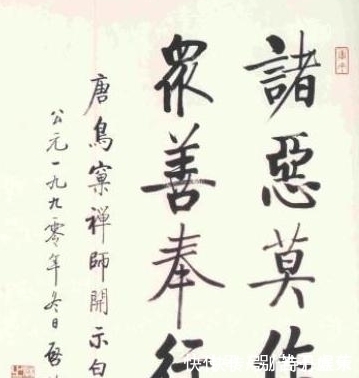 諸惡莫作
衆善奉行
唐鳥窠禪師開示白
公元一九九零年冬日啓